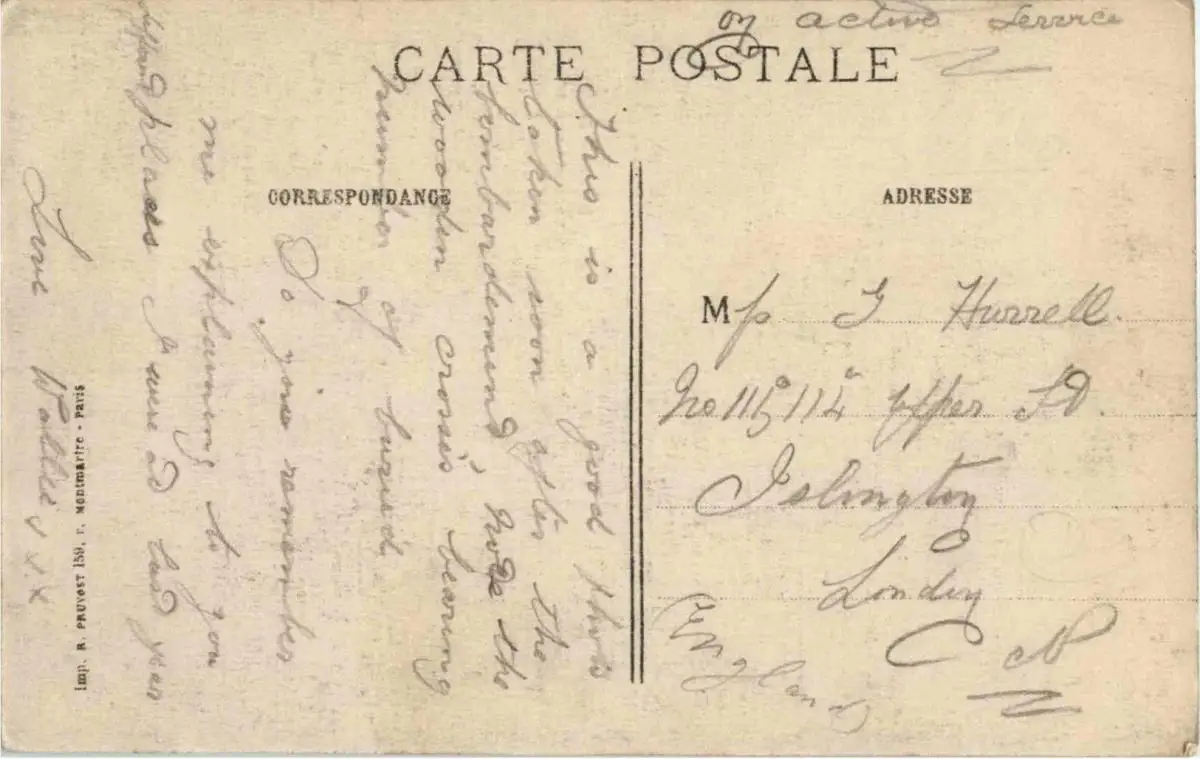 on active service
CARTE POSTALE
CORRESPONDANCE
This is a good photo
taken soon after the
bombardement, Note the
wooden crosses bearing
number of buried
Do you remember
me explaining to you
places I were at last year
Love Wallie xx
Imp. R. PRUVOST 159, r. Montmartre - PARIS
ADRESSE
G Hurrell.
No 115, 114 Upper St.
Islington
London
N
England